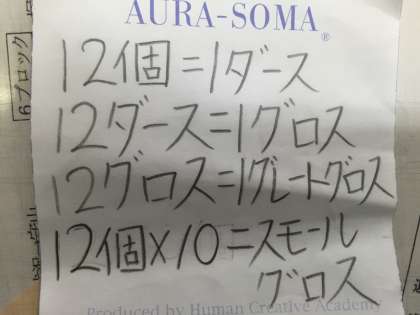 AURA-SOMA®
12個=1ダース
12ダース=1グロス
12グロス=1グレートグロス
12個×10=スモール
グロス
Produced by Human Creative Academy
6ブロック